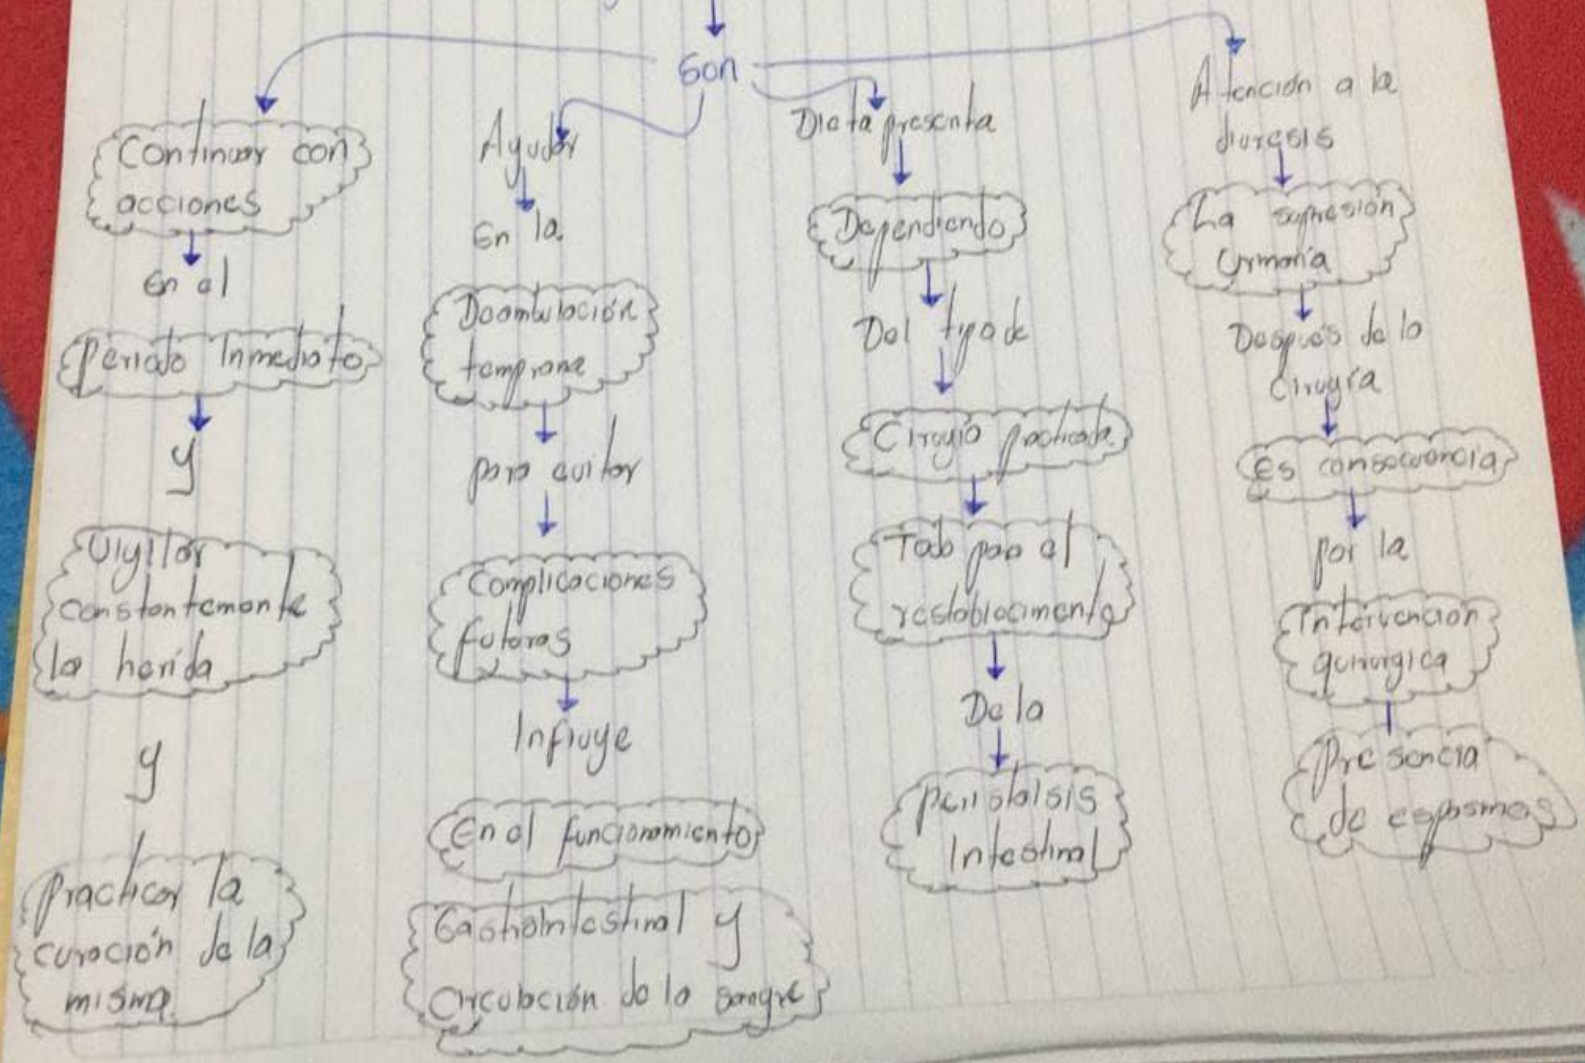 Son
Continuar con
acciones
En el
periodo Inmediato
y
Vigilar
constantemente
la herida
y
practicar la
curación de la
misma.
Ayudar
En la
Deambulación
temprana
para evitar
Complicaciones
futuras
Influye
En el funcionamiento
Gastrointestinal y
Circulación de la sangre
Dieta presenta
Dependiendo
Del tipo de
Cirugía practicada
Todo para el
restablecimento
De la
peristalsis
Intestinal
Atención a la
diuresis
La supresión
Después de la
Cirugía
es consecuencia
por la
Intervención
quirurgica
Presencia
de espasmos